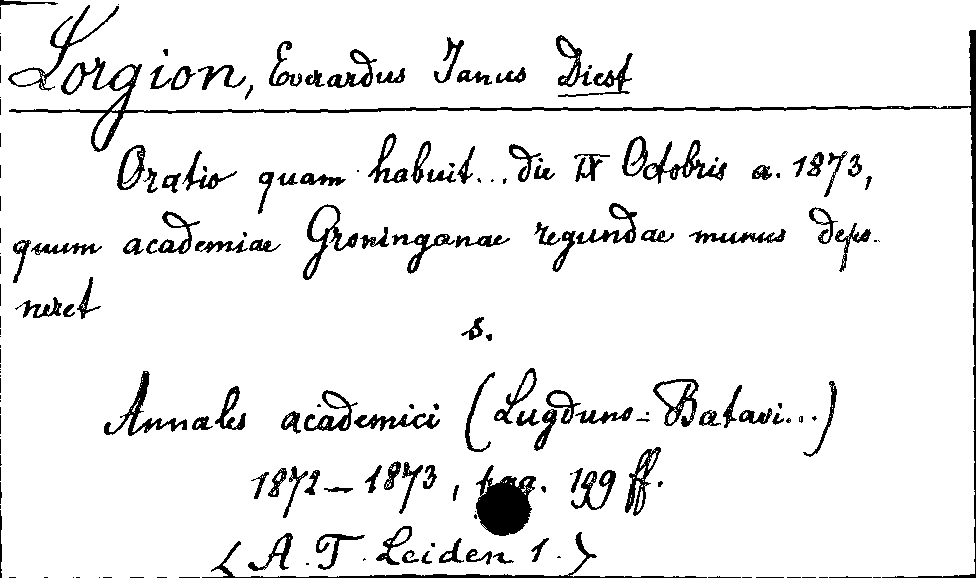 Lorgion, Everardus Janus Diest
Oratio quam habuit... die IX Octobris a. 1873,
quum academiae Groninganae regundae munus depo-
neret
s.
Annales academici (Lugduno-Batavi...)
1872–1873, pag. 199 ff.
< A. T. Leiden 1. >